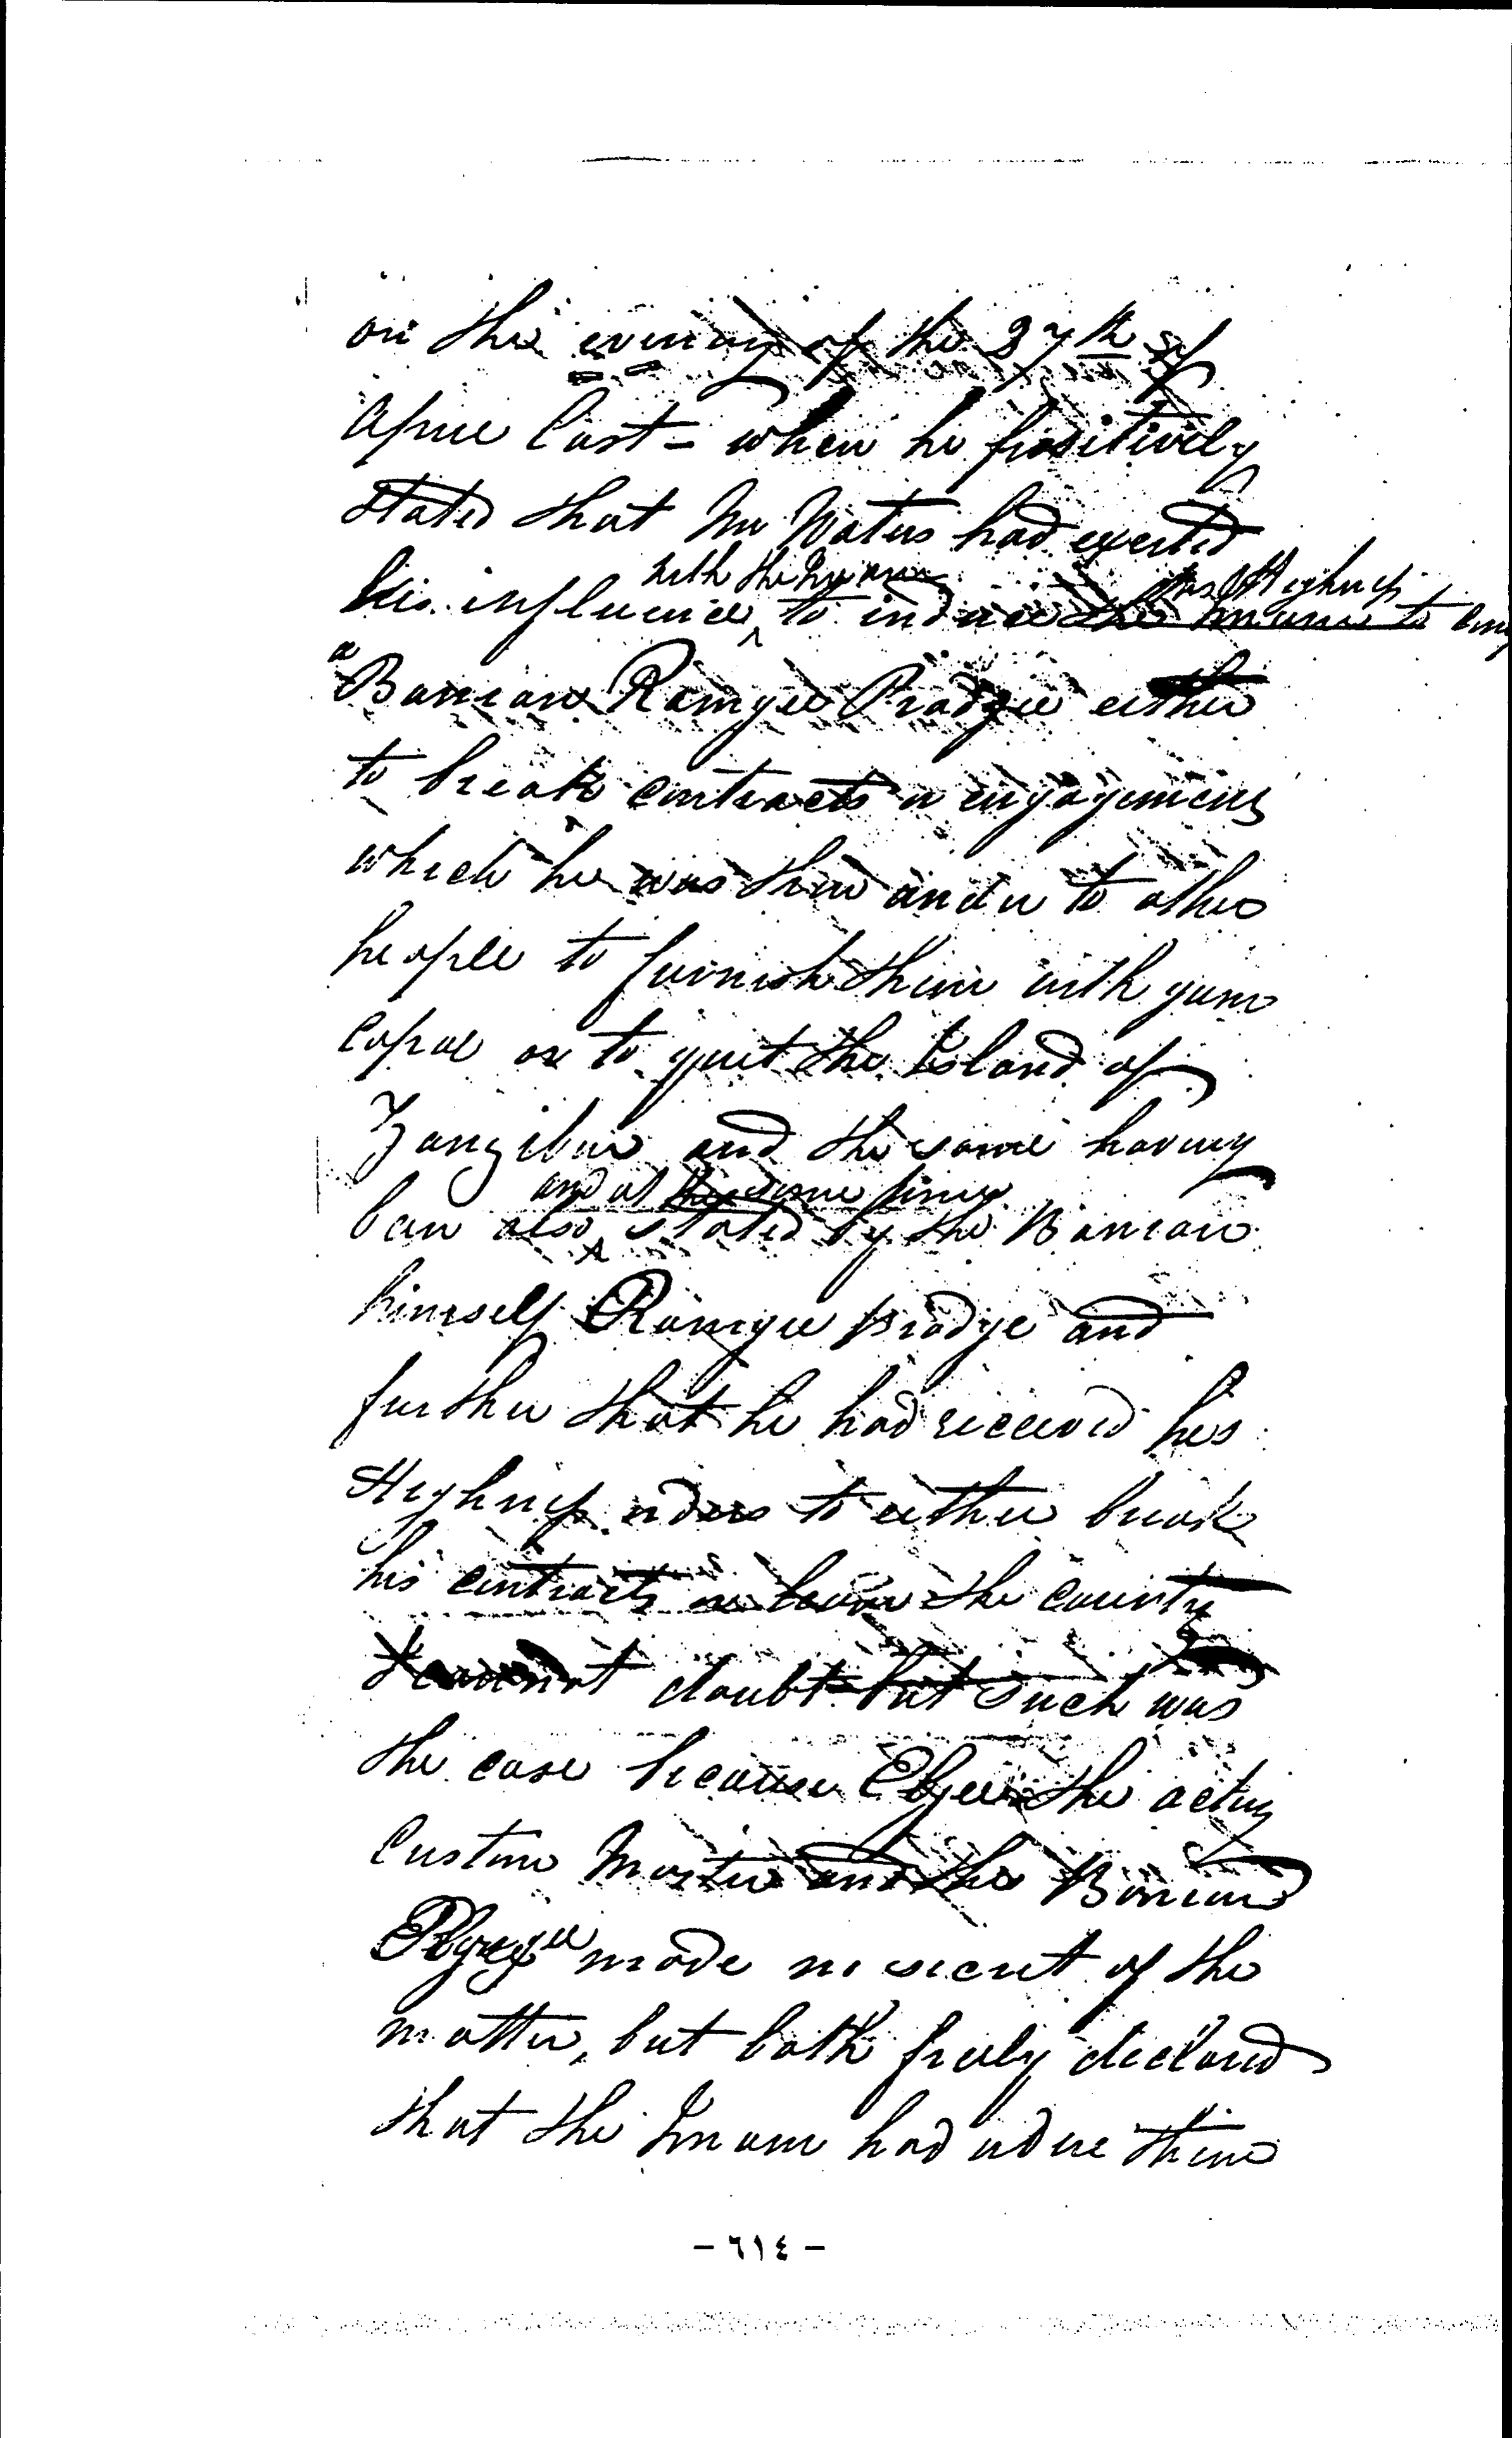 on the evening of the 27th of
April last - when he positively
stated that Mr Waters had exerted
with the Imam his Highness
his influence ^ to induce the Imam to
a Banian Ramgee Pradgee either
to break contracts or engagements
which he was then under to other
people to furnish them with gum
Copal or to quit the Island of
Zanzibar and the same having
and at the same time
been also ^ stated by the Banian
himself Ramgee Pradge and
further that he had received his
Highness orders to either break
his contracts or leave the country
I cannot doubt but such was
the case because Ebjee the acting
Custom Master and the Banian
made no secret of the
matter, but both freely declared
that the Imam had
- ٦١٤ -